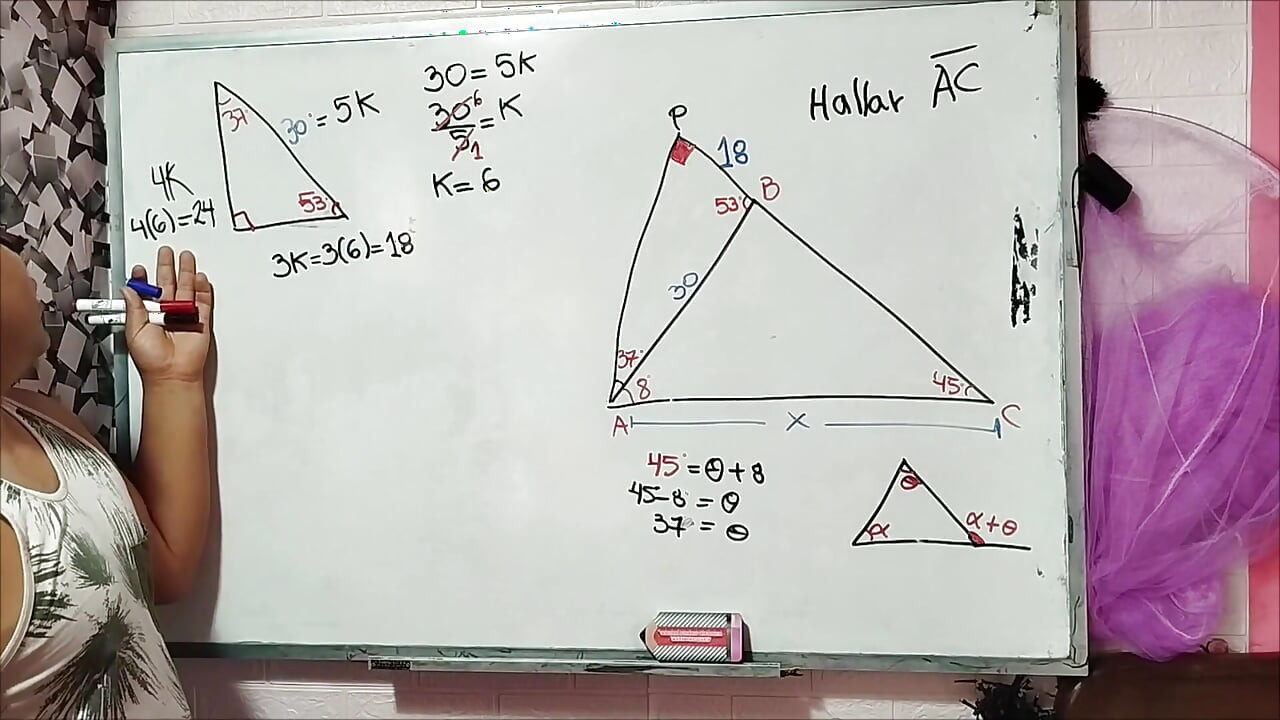 37°
30 = 5K
4K
4(6)=24
53°
3K=3(6)=18
30 = 5K
30 6
5 1 = K
K = 6
Hallar AC
P
18
53° B
30
37°
8°
45°
A x C
45° = θ + 8
45-8 = θ
37 = θ
θ
α
α+θ